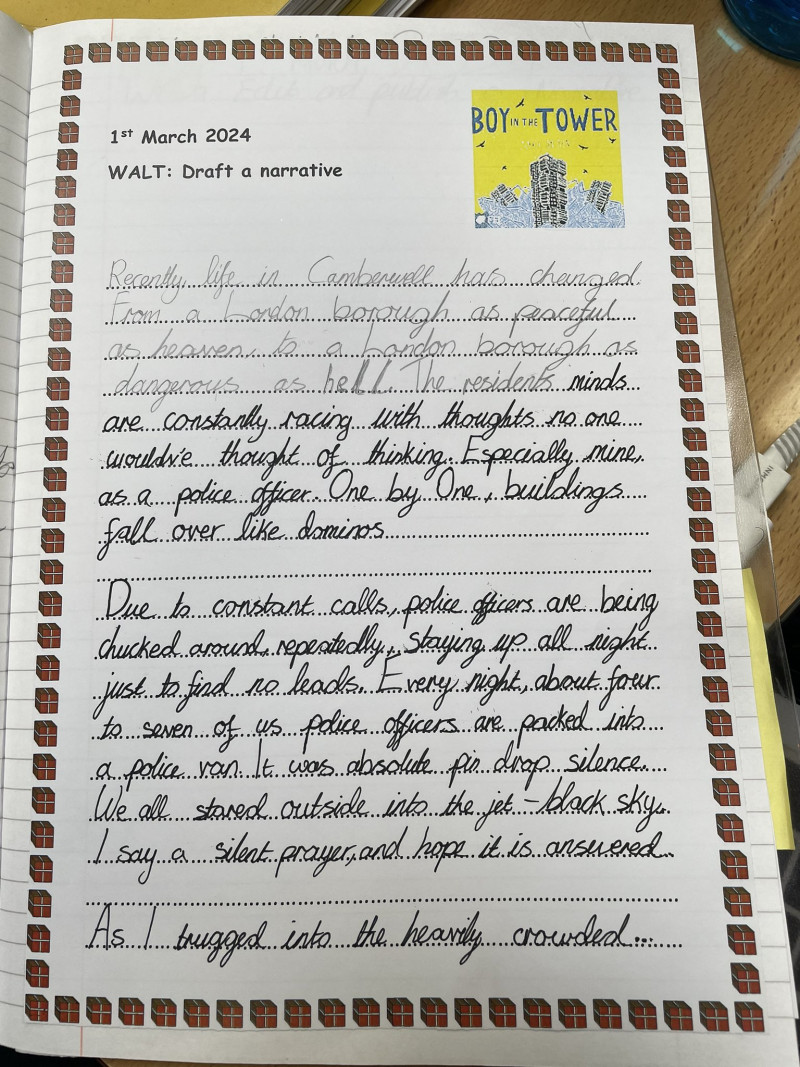 1st March 2024
WALT: Draft a narrative
BOY IN THE TOWER
Recently, life in Camberwell has changed.
From a London borough as peaceful
as heaven, to a London borough as
dangerous as hell. The residents minds
are constantly racing with thoughts no one
wouldve thought of thinking. Especially mine,
as a police officer. One by One, buildings
fall over like dominos
Due to constant calls, police officers are being
chucked around, repeatedly, staying up all night
just to find no leads. Every night, about four
to seven of us police officers are packed into
a police van. It was absolute pin drop silence.
We all stared outside into the jet-black sky.
I say a silent prayer, and hope it is answered.
As I trugged into the heavily crowded...